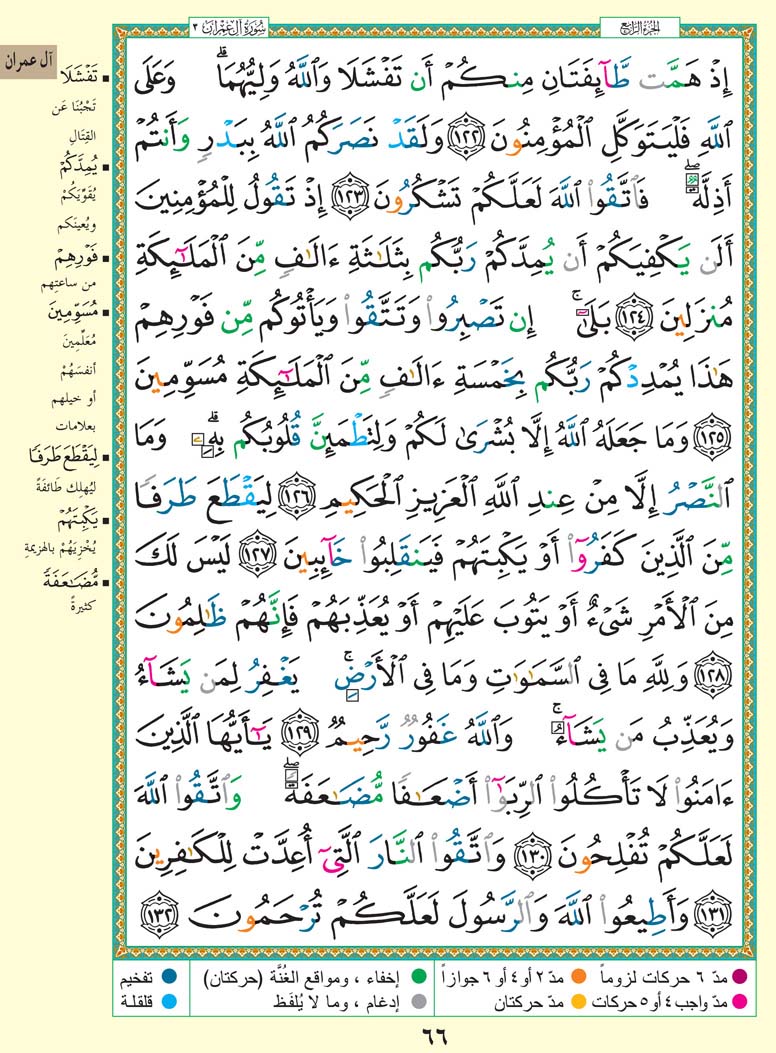 الجزء الرابع
سورة آل عمران ٣
إِذْ هَمَّت طَّآئِفَتَانِ مِنكُمْ أَن تَفْشَلَا وَٱللَّهُ وَلِيُّهُمَا ۗ وَعَلَى
ٱللَّهِ فَلْيَتَوَكَّلِ ٱلْمُؤْمِنُونَ ١٢٢ وَلَقَدْ نَصَرَكُمُ ٱللَّهُ بِبَدْرٍ وَأَنتُمْ
أَذِلَّةٌ ۖ فَٱتَّقُوا۟ ٱللَّهَ لَعَلَّكُمْ تَشْكُرُونَ ١٢٣ إِذْ تَقُولُ لِلْمُؤْمِنِينَ
أَلَن يَكْفِيَكُمْ أَن يُمِدَّكُمْ رَبُّكُم بِثَلَـٰثَةِ ءَالَـٰفٍ مِّنَ ٱلْمَلَـٰٓئِكَةِ
مُنزَلِينَ ١٢٤ بَلَىٰٓ ۚ إِن تَصْبِرُوا۟ وَتَتَّقُوا۟ وَيَأْتُوكُم مِّن فَوْرِهِمْ
هَـٰذَا يُمْدِدْكُمْ رَبُّكُم بِخَمْسَةِ ءَالَـٰفٍ مِّنَ ٱلْمَلَـٰٓئِكَةِ مُسَوِّمِينَ
١٢٥ وَمَا جَعَلَهُ ٱللَّهُ إِلَّا بُشْرَىٰ لَكُمْ وَلِتَطْمَئِنَّ قُلُوبُكُم بِهِۦ ۗ وَمَا
ٱلنَّصْرُ إِلَّا مِنْ عِندِ ٱللَّهِ ٱلْعَزِيزِ ٱلْحَكِيمِ ١٢٦ لِيَقْطَعَ طَرَفًا
مِّنَ ٱلَّذِينَ كَفَرُوٓا۟ أَوْ يَكْبِتَهُمْ فَيَنقَلِبُوا۟ خَآئِبِينَ ١٢٧ لَيْسَ لَكَ
مِنَ ٱلْأَمْرِ شَىْءٌ أَوْ يَتُوبَ عَلَيْهِمْ أَوْ يُعَذِّبَهُمْ فَإِنَّهُمْ ظَـٰلِمُونَ
١٢٨ وَلِلَّهِ مَا فِى ٱلسَّمَـٰوَٰتِ وَمَا فِى ٱلْأَرْضِ ۚ يَغْفِرُ لِمَن يَشَآءُ
وَيُعَذِّبُ مَن يَشَآءُ ۚ وَٱللَّهُ غَفُورٌ رَّحِيمٌ ١٢٩ يَـٰٓأَيُّهَا ٱلَّذِينَ
ءَامَنُوا۟ لَا تَأْكُلُوا۟ ٱلرِّبَوٰٓا۟ أَضْعَـٰفًا مُّضَـٰعَفَةً ۖ وَٱتَّقُوا۟ ٱللَّهَ
لَعَلَّكُمْ تُفْلِحُونَ ١٣٠ وَٱتَّقُوا۟ ٱلنَّارَ ٱلَّتِىٓ أُعِدَّتْ لِلْكَـٰفِرِينَ
١٣١ وَأَطِيعُوا۟ ٱللَّهَ وَٱلرَّسُولَ لَعَلَّكُمْ تُرْحَمُونَ ١٣٢
آل عمران
تَفْشَلَا
تَجْبُنَا عَن
القِتَالِ
يُمِدَّكُمْ
يُقَوِّيَكُمْ
ويُعِينَكم
فَوْرِهِمْ
من ساعتِهم
مُسَوِّمِينَ
مُعَلِّمِينَ
أنفسَهُمْ
أو خيلهم
بعلامات
لِيَقْطَعَ طَرَفًا
ليُهلِكَ طَائفَةً
يَكْبِتَهُمْ
يُخْزِيَهُمْ بالهزيمةِ
مُّضَـٰعَفَةً
كثيرةً
مدّ ٦ حركات لزوماً
مدّ ٢ أو ٤ أو ٦ جوازاً
إخفاء ، ومواقع الغُنَّة (حركتان)
تفخيم
مدّ واجب ٤ أو ٥ حركات
مدّ حركتان
إدغام ، وما لا يُلفَظ
قلقلة
٦٦